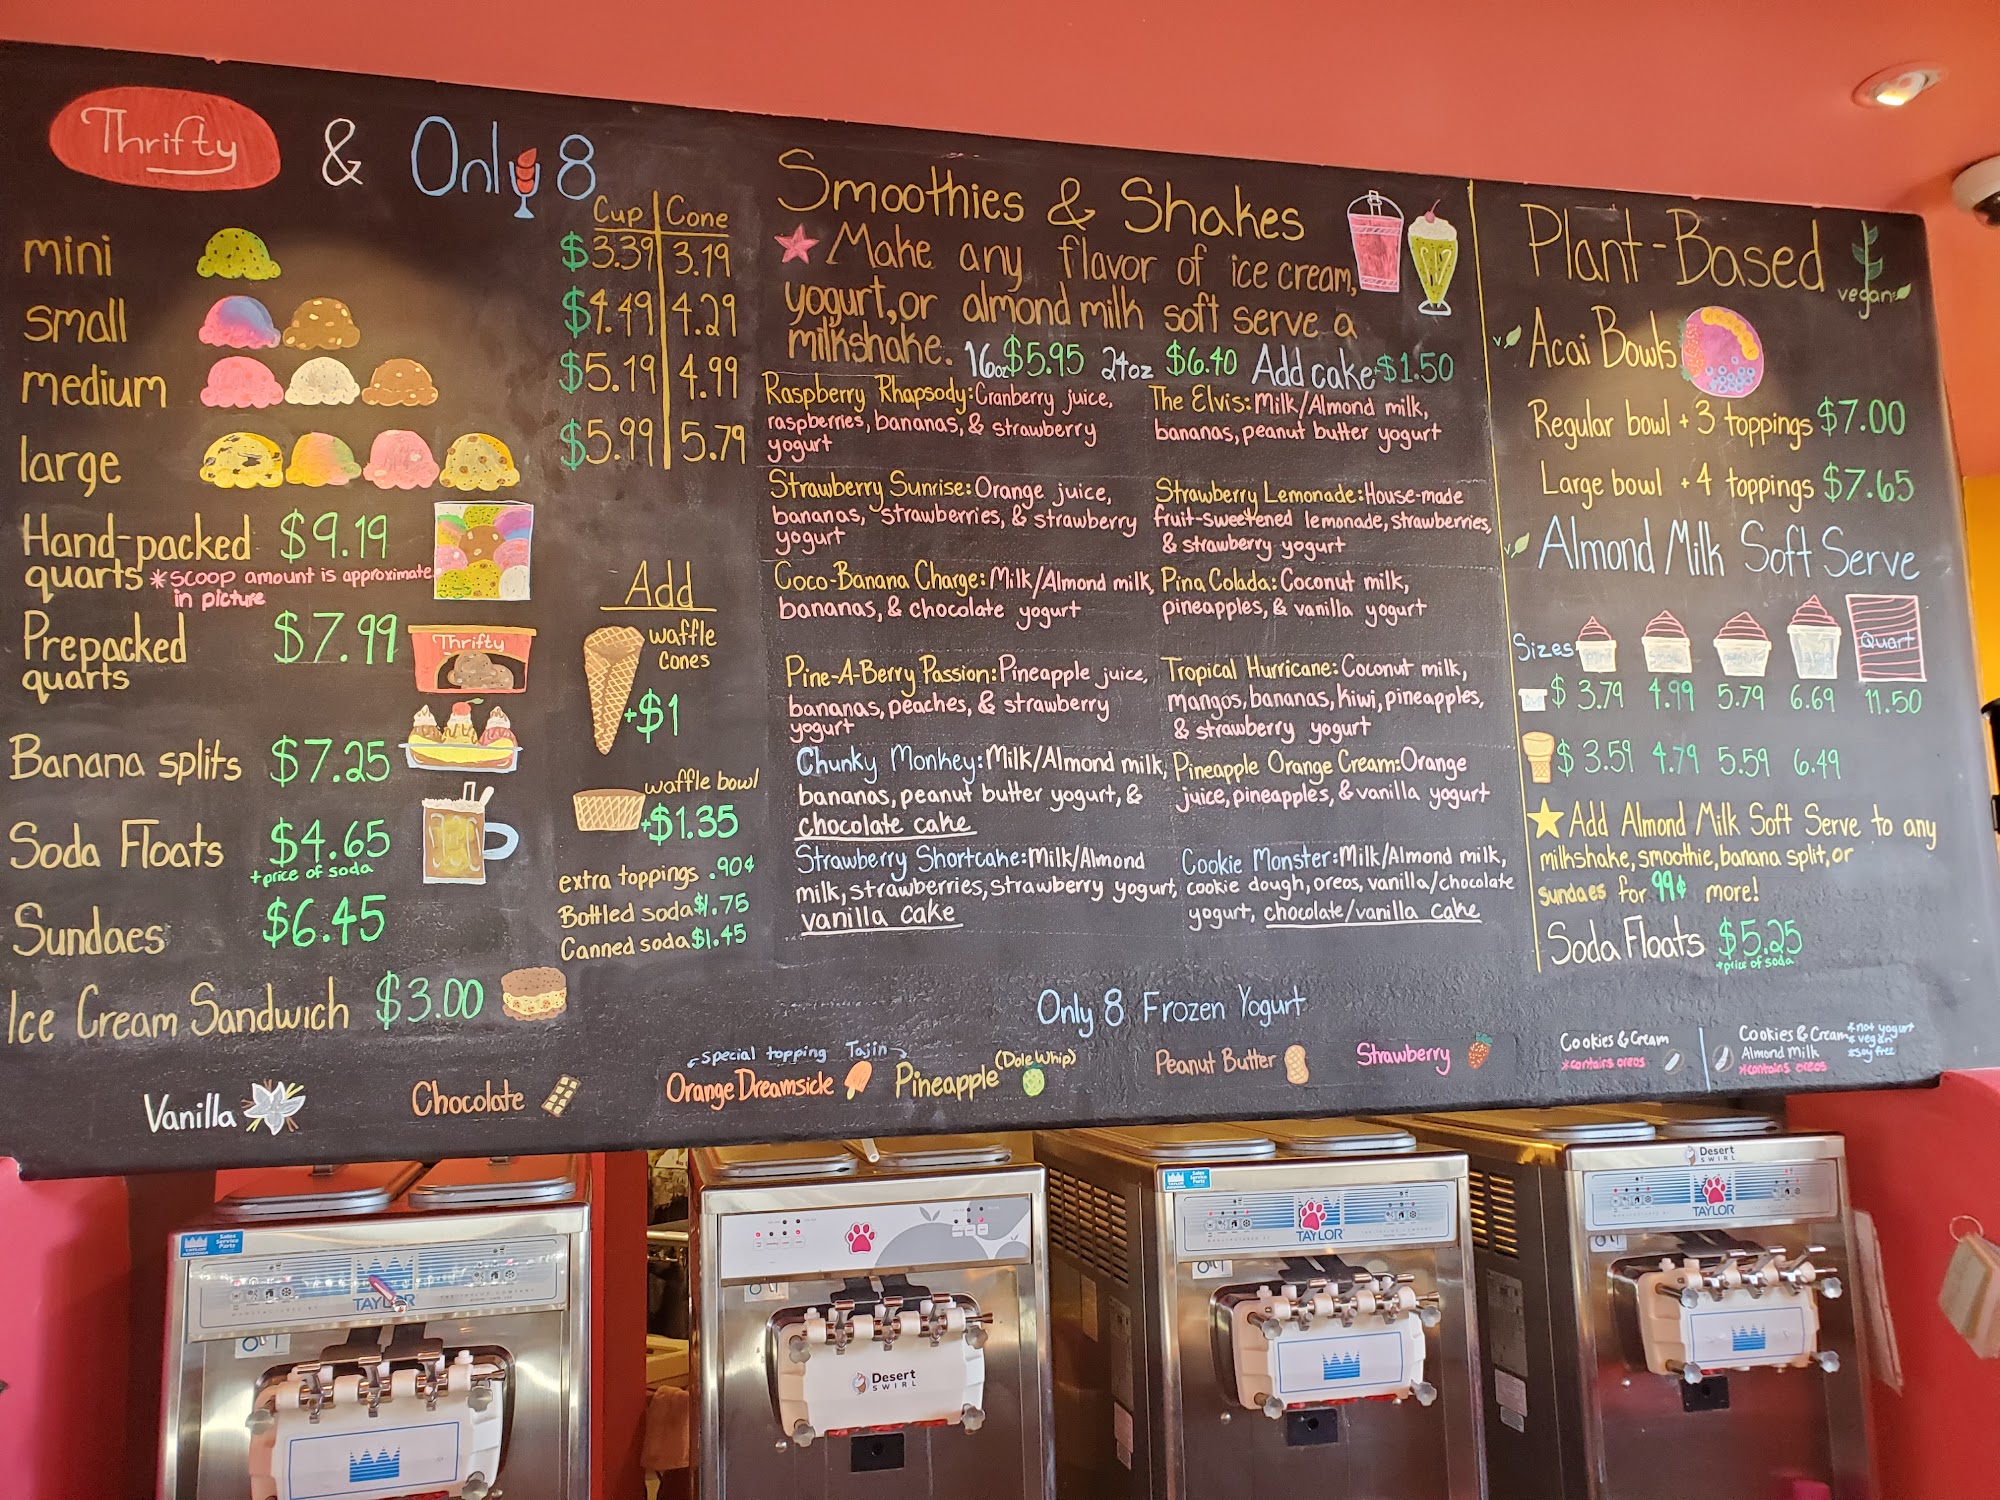 Thrifty & Only 8
Cup Cone
mini $3.39 3.19
small $4.49 4.29
medium $5.19 4.99
large $5.99 5.79
Hand-packed $9.19
quarts *scoop amount is approximate
in picture
Prepacked $7.99
quarts
Thrifty
Banana splits $7.25
Soda Floats $4.65
+price of soda
Sundaes $6.45
Ice Cream Sandwich $3.00
Add
waffle
cones
+$1
waffle bowl
+$1.35
extra toppings .90¢
Bottled soda $1.75
Canned soda $1.45
Smoothies & Shakes
Make any flavor of ice cream,
yogurt, or almond milk soft serve a
milkshake. 16oz $5.95 24oz $6.40 Add cake +$1.50
Raspberry Rhapsody: Cranberry juice,
raspberries, bananas, & strawberry
yogurt
Strawberry Sunrise: Orange juice,
bananas, strawberries, & strawberry
yogurt
Coco-Banana Charge: Milk/Almond milk,
bananas, & chocolate yogurt
Pine-A-Berry Passion: Pineapple juice,
bananas, peaches, & strawberry
yogurt
Chunky Monkey: Milk/Almond milk,
bananas, peanut butter yogurt, &
chocolate cake
Strawberry Shortcake: Milk/Almond
milk, strawberries, strawberry yogurt,
vanilla cake
The Elvis: Milk/Almond milk,
bananas, peanut butter yogurt
Strawberry Lemonade: House-made
fruit-sweetened lemonade, strawberries,
& strawberry yogurt
Pina Colada: Coconut milk,
pineapples, & vanilla yogurt
Tropical Hurricane: Coconut milk,
mangos, bananas, kiwi, pineapples,
& strawberry yogurt
Pineapple Orange Cream: Orange
juice, pineapples, & vanilla yogurt
Cookie Monster: Milk/Almond milk,
cookie dough, oreos, vanilla/chocolate
yogurt, chocolate/vanilla cake
Plant-Based
vegan
v Acai Bowls
Regular bowl + 3 toppings $7.00
Large bowl + 4 toppings $7.65
v Almond Milk Soft Serve
Sizes
Quart
$ 3.79 4.99 5.79 6.69 11.50
$ 3.59 4.79 5.59 6.49
Add Almond Milk Soft Serve to any
milkshake, smoothie, banana split, or
sundaes for 99¢ more!
Soda Floats $5.25
+price of soda
Only 8 Frozen Yogurt
Vanilla
Chocolate
special topping Tajin
Orange Dreamsicle
Pineapple (Dole Whip)
Peanut Butter
Strawberry
Cookies & Cream
*contains oreos
Cookies & Cream
Almond Milk
*contains oreos
*not yogurt
*vegan
*soy free
TAYLOR
Desert
SWIRL
TAYLOR
Desert
SWIRL
TAYLOR